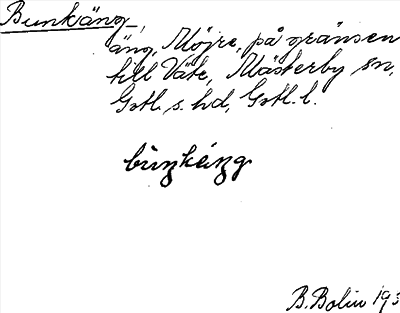 Bunkäng,
äng, Möjre, på gränsen
till Väte, Mästerby sn,
Gotl. s. hd, Gotl. l.
bùŋkäŋg
B. Bolin 193